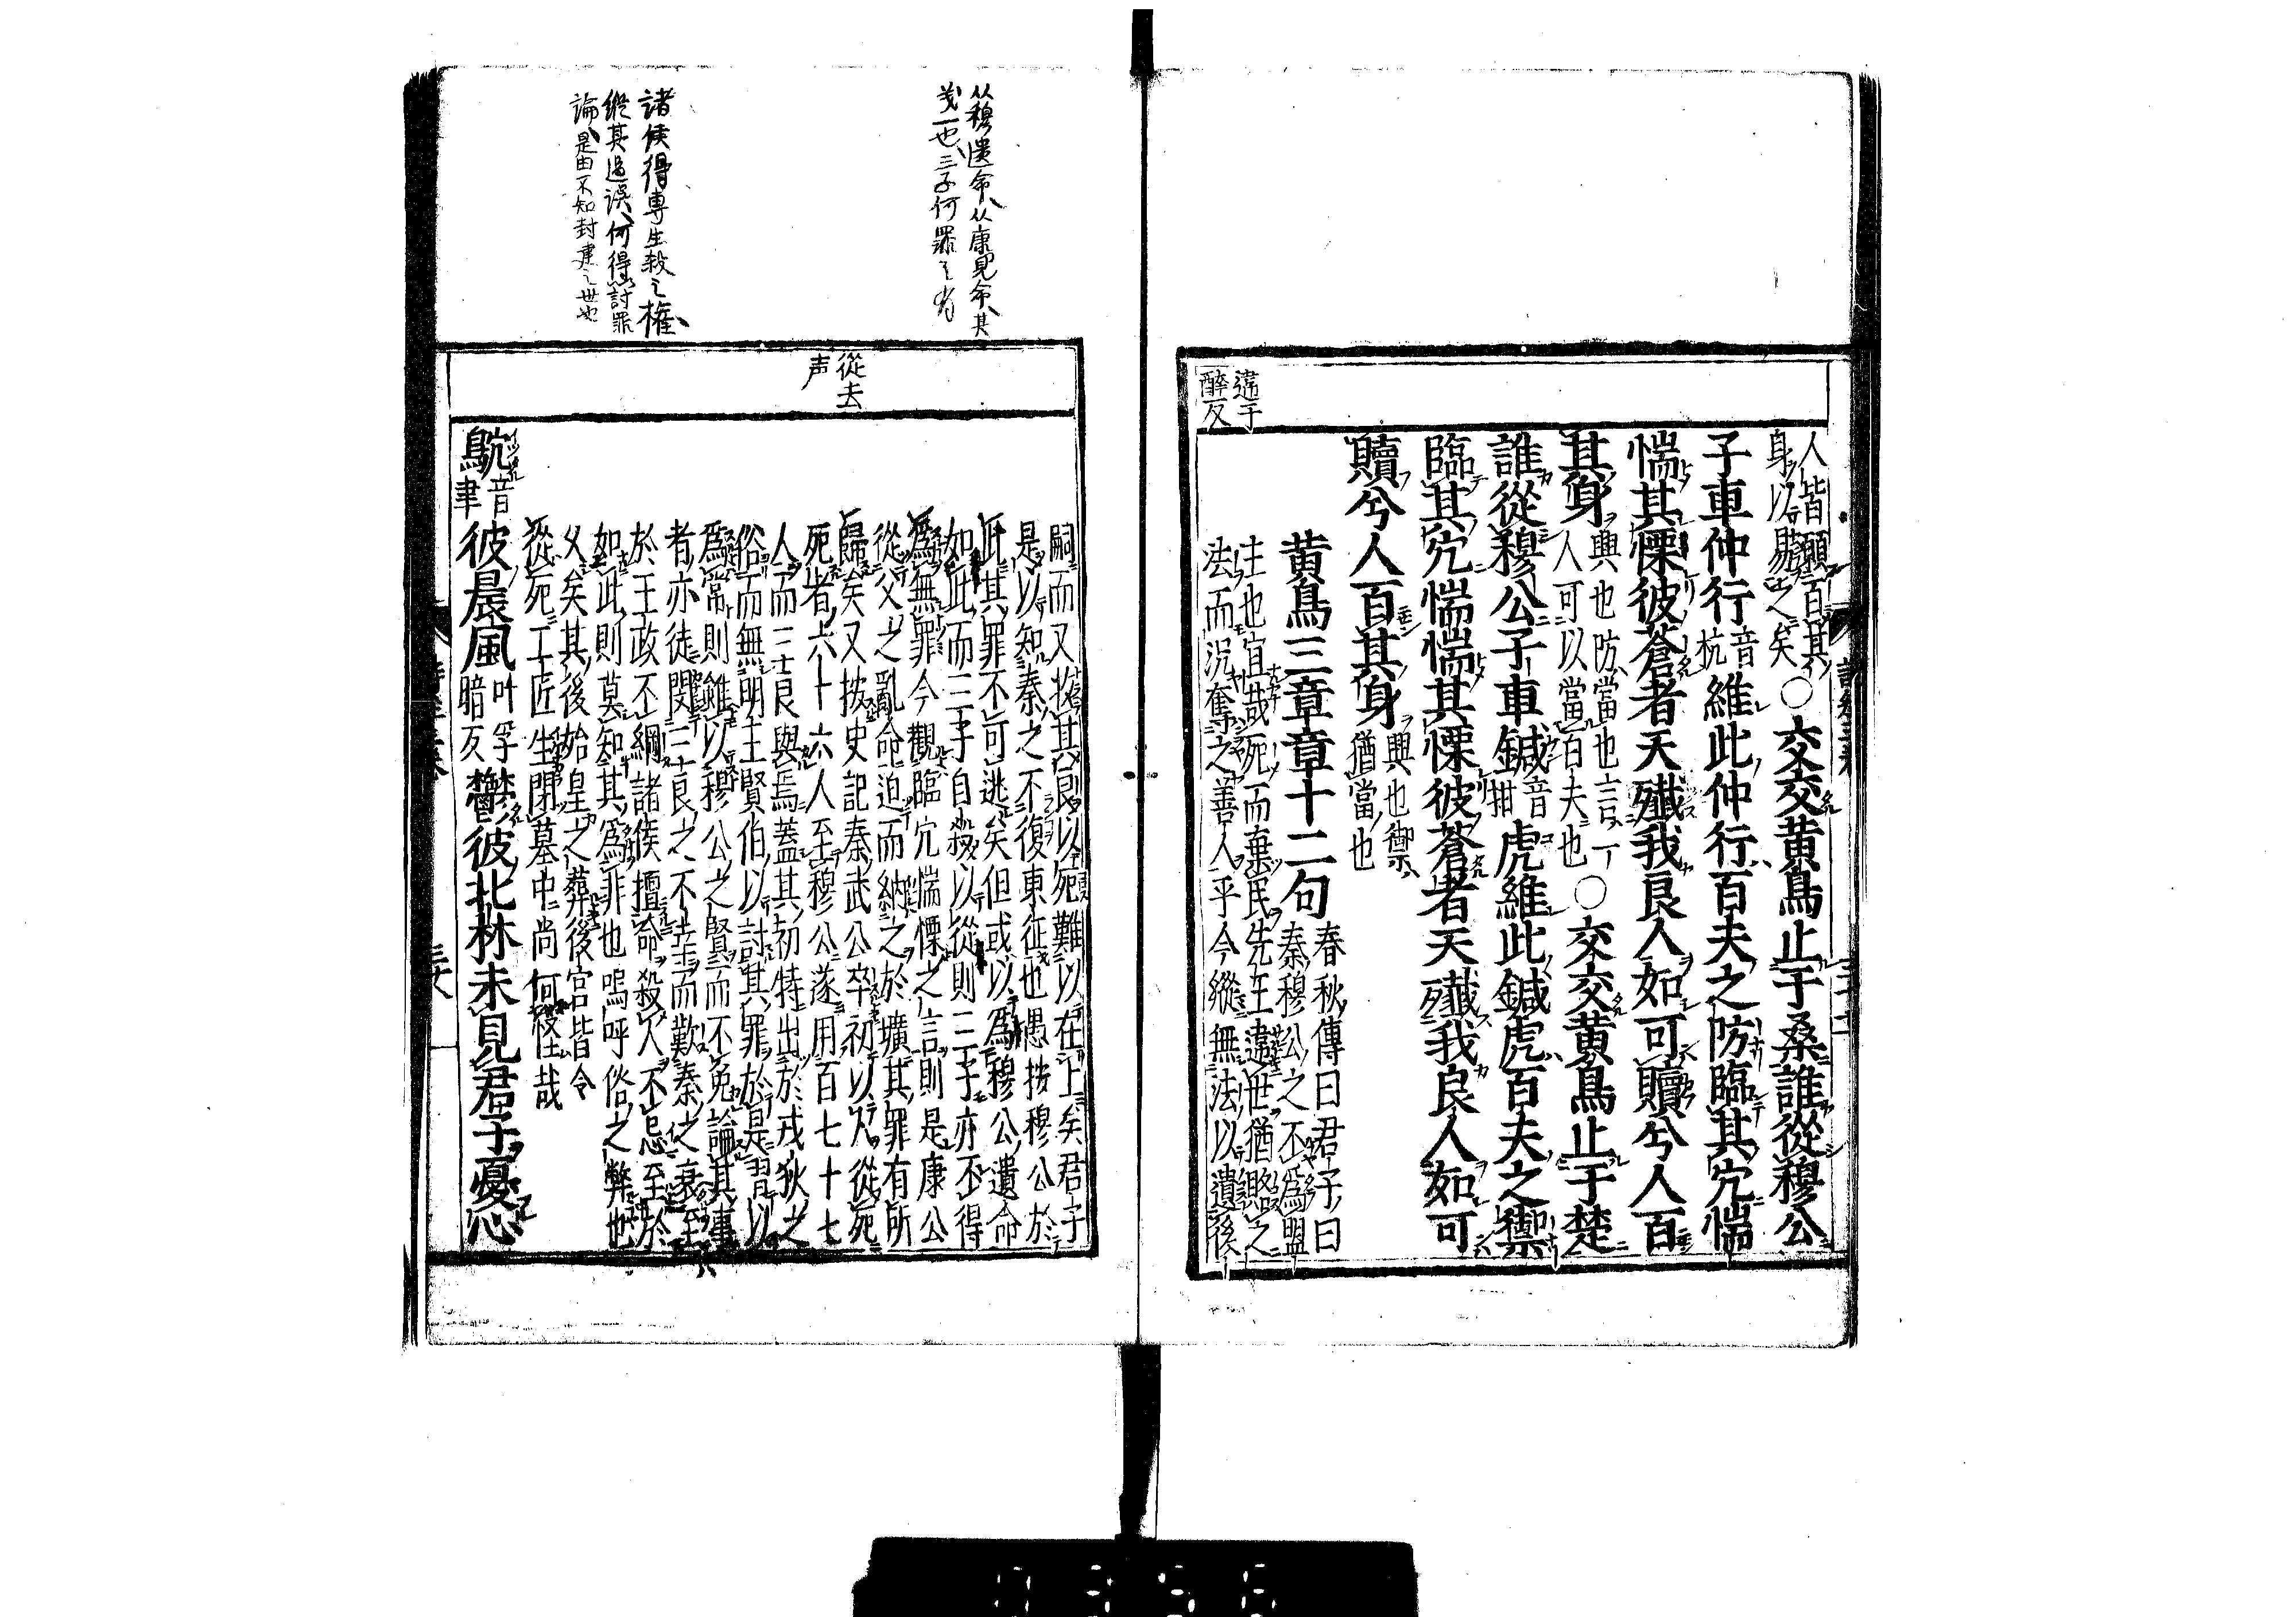 違于
醉反
人皆願百其
身以易之矣○交交黄鳥止于桑誰從穆公
子車仲行音杭維此仲行百夫之防臨其穴惴
惴其慄彼蒼者天殲我良人如可贖兮人百
其身興也防當也言一人可以當百夫也○交交黄鳥止于楚
誰從穆公子車鍼音拑虎維此鍼虎百夫之禦
臨其穴惴惴其慄彼蒼者天殲我良人如可
贖兮人百其身興也禦猶當也
黄鳥三章章十二句春秋傳曰君子曰
秦穆公之不爲盟
主也宜哉死而棄民先王違世猶詒之
法而況奪之善人乎今縱無法以遺後
从穆遺命、从康見命、其
義一也、三子何罪之有
諸侯得専生殺之權、
縦其過誤、何得討罪
論、是由不知封建之世也
從去
声
嗣而又收其良以死難以在上矣君子
是以知秦之不復東征也愚按穆公於
此其罪不可逃矣但或以爲穆公遺命
如此而三子自殺以從則三子亦不得
爲無罪今觀臨穴惴慄之言則是康公
從父之亂命迫而納之於壙其罪有所
歸矣又按史記秦武公卒初以人從死
死者六十六人至穆公遂用百七十七
人而三良與焉蓋其初特出於戎狄之
俗而無明王賢伯以討其罪於是習以
爲常則雖以穆公之賢而不免論其事
者亦徒閔三良之不幸而歎秦之衰至
於王政不綱諸侯擅命殺人不忌至於
如此則莫知其爲非也嗚呼俗之弊也
久矣其後始皇之葬後宮皆令
從死工匠生閉墓中尚何怪哉
鴥音聿彼晨風叶孚愔反鬱彼北林未見君子憂心